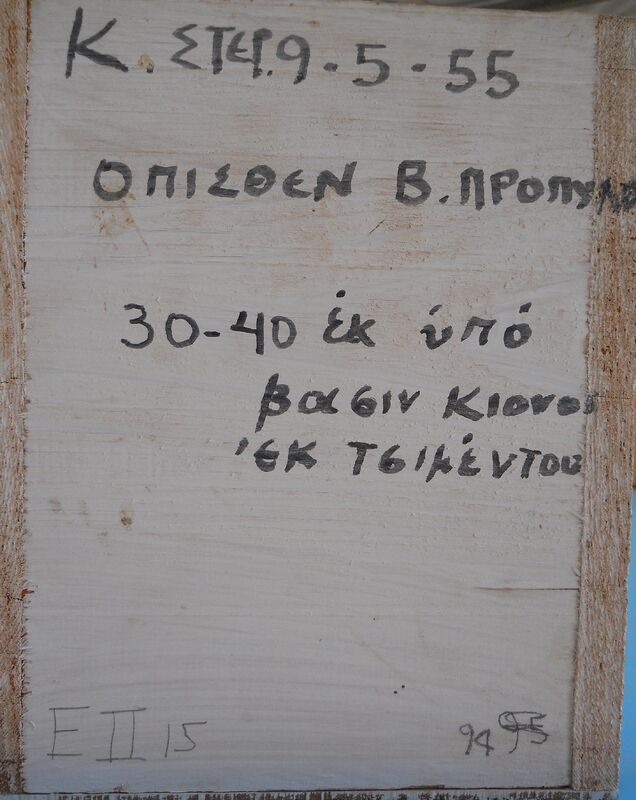 Κ. ΣΤΕΡ. 9-5-55
ΟΠΙΣΘΕΝ Β. ΠΡΟΠΥΛΟ
30-40 ἐκ ὑπό
βασιν κιονος
ἘΚ ΤΣΙΜΕΝΤΟΥ
E II 15
94